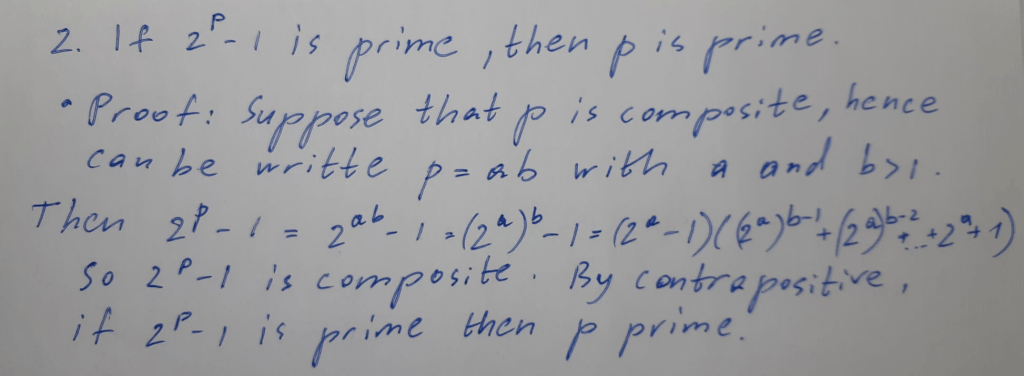 2. If 2^p - 1 is prime, then p is prime.
• Proof: Suppose that p is composite, hence
can be writte p = ab with a and b>1.
Then 2^p - 1 = 2^ab - 1 = (2^a)^b - 1 = (2^a - 1)((2^a)^b-1 + (2^a)^b-2 + ... + 2^a + 1)
So 2^p - 1 is composite. By contrapositive,
if 2^p - 1 is prime then p prime.